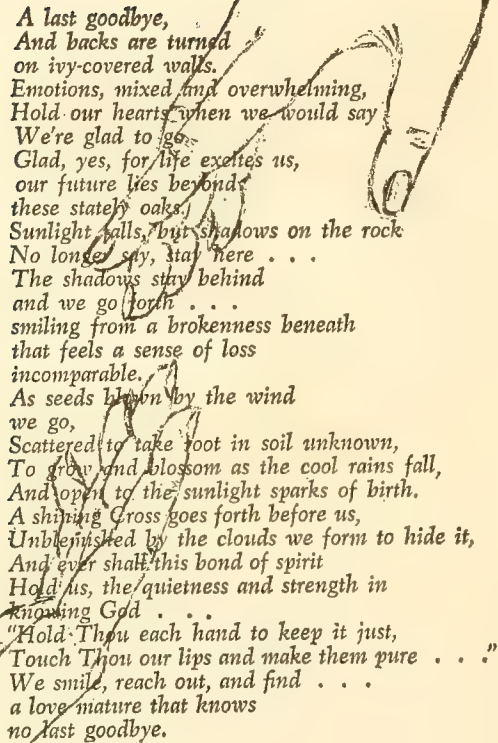 A last goodbye,
And backs are turned
on ivy-covered walls.
Emotions, mixed and overwhelming,
Hold our hearts when we would say
We're glad to go.
Glad, yes, for life excites us,
our future lies beyond
these stately oaks.
Sunlight falls, but shadows on the rock
No longer say, stay here . . .
The shadows stay behind
and we go forth . . .
smiling from a brokenness beneath
that feels a sense of loss
incomparable.
As seeds blown by the wind
we go,
Scattered to take root in soil unknown,
To grow and blossom as the cool rains fall,
And open to the sunlight sparks of birth.
A shining Cross goes forth before us,
Unblemished by the clouds we form to hide it,
And ever shall this bond of spirit
Hold us, the quietness and strength in
knowing God . . .
"Hold Thou each hand to keep it just,
Touch Thou our lips and make them pure . . ."
We smile, reach out, and find . . .
a love mature that knows
no last goodbye.